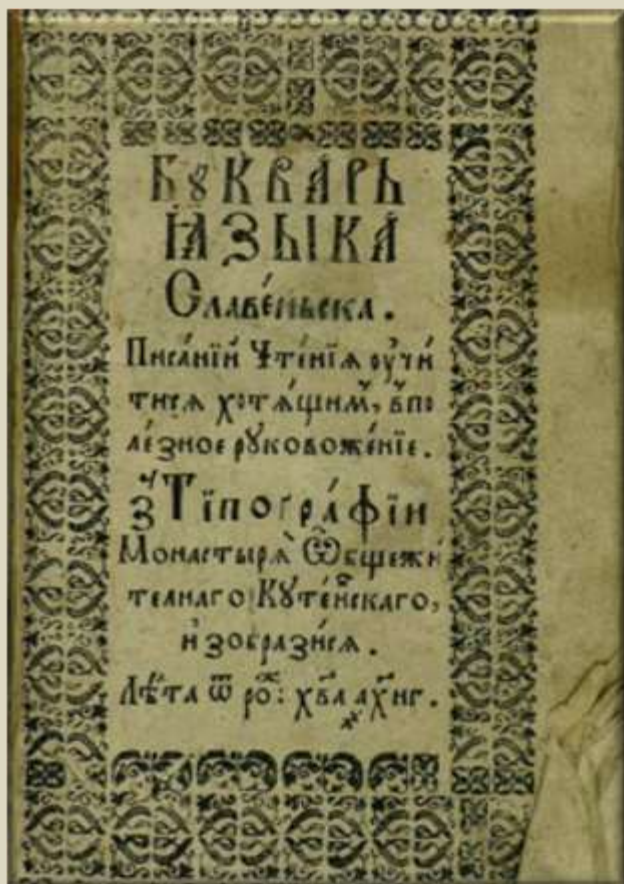 Бꙋква́рь
ꙗ҆зы́ка
Славе́ньска.
Писа́нїй Чте́нїѧ оу҆чи́
тисѧ хотѧ́щимъ, в̾по
ле́зное рꙋковоже́нїе.
з̾ Тѷпогра́фїи
Монастырѧ̀ Ѻ҆бщежи́
телнаго Кꙋте́йнскаго,
и҆зобрази́сѧ.
Лѣ́та ѿ ро́ж: хв҃а ҂ахнг.